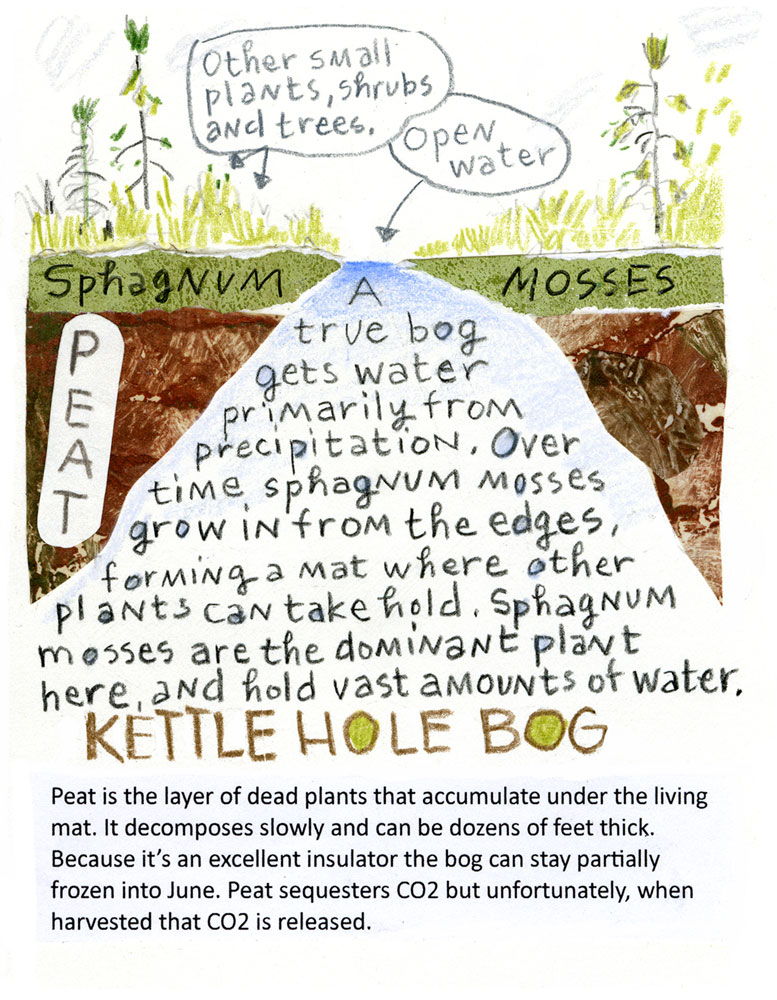 Other small
plants, shrubs
and trees.
Open
water
Sphagnum
Mosses
PEAT
A
true bog
gets water
primarily from
precipitation. Over
time sphagnum mosses
grow in from the edges,
forming a mat where other
plants can take hold. Sphagnum
mosses are the dominant plant
here, and hold vast amounts of water.
KETTLE HOLE BOG
Peat is the layer of dead plants that accumulate under the living
mat. It decomposes slowly and can be dozens of feet thick.
Because it's an excellent insulator the bog can stay partially
frozen into June. Peat sequesters CO2 but unfortunately, when
harvested that CO2 is released.